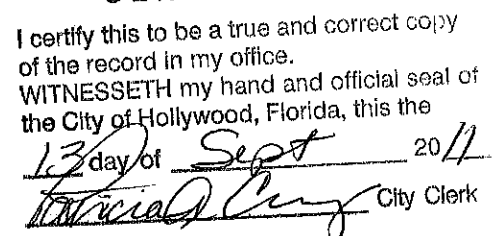 I certify this to be a true and correct copy
of the record in my office.
WITNESSETH my hand and official seal of
the City of Hollywood, Florida, this the
13 day of Sept 2011
Patricia A City Clerk